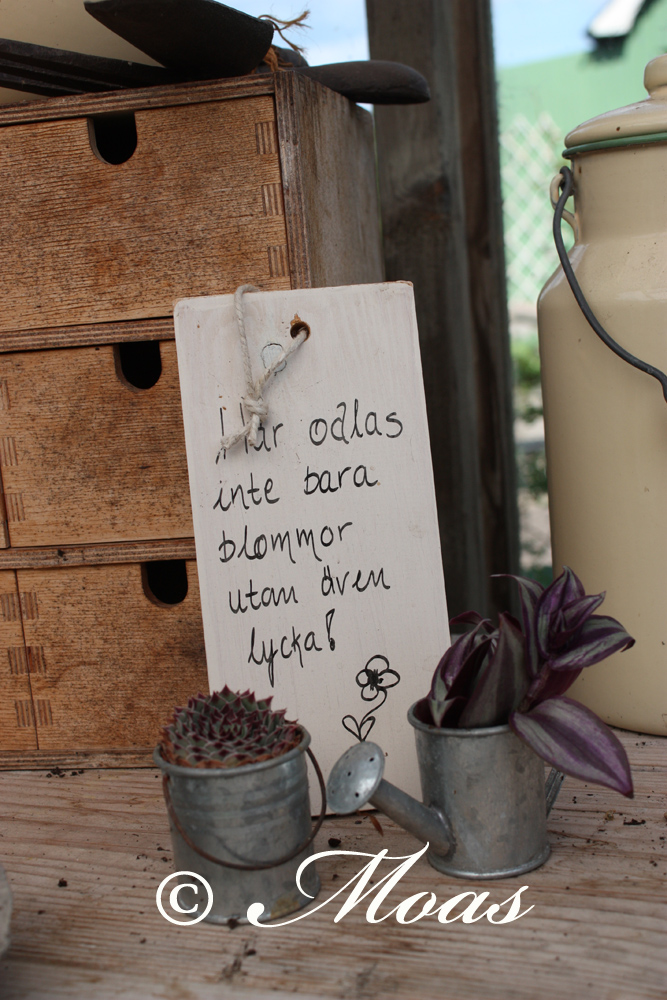 Här odlas
inte bara
blommor
utan även
lycka!
© Moas